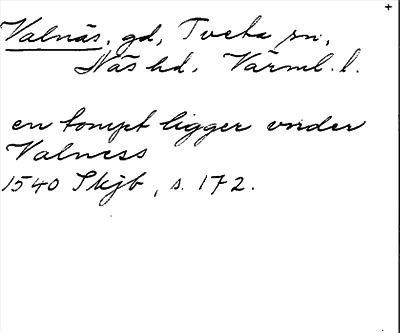 Valnäs, gd, Tveta sn,
Näs hd, Värml. l.
en tompt ligger vnder
Valness
1540 Skjb, s. 172.